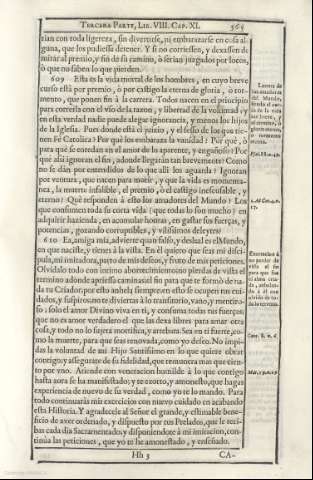 TERCERA PARTE, LIB. VIII. CAP. XI. 565
rian con toda ligereza, sin divertirse, ni embarazarse en cosa al-
guna, que los pudiesse detener. Y si no corriessen, y dexassen de
mirar al premio, y fin de su camino, ò serian juzgados por locos,
ò que no saben lo que pierden.
609 Esta es la vida mortal de los hombres, en cuyo breve
curso està por premio, ò por castigo la eterna de gloria, ò tor-
mento, que ponen fin à la carrera. Todos nacen en el principio
para correrla con el vso de la razon, y libertad de la voluntad; y
en esta verdad nadie puede alegar ignorancia, y menos los hijos
de la Iglesia. Pues donde està el juizio, y el sesso de los que tie-
nen Fè Catolica? Por què los embaraza la vanidad? Por què, ò
para què se enredan en el amor de lo aparente, y engañoso? Por
què assi ignoran el fin, adonde llegaràn tan brevemente? Como
no se dàn por entendidos de lo que alli los aguarda? Ignoran
por ventura, que nacen para morir, y que la vida es momenta-
nea, la muerte infalible, el premio, ò el castigo inescusable, y
eterno? Què responden à esto los amadores del Mundo? Los
que consumen toda su corta vida (que todas lo son mucho) en
adquirir hazienda, en acomular honras, en gastar sus fuerças, y
potencias, gozando corruptibles, y vilissimos deleytes?
610 Ea, amiga mia, advierte quan falso, y desleal es el Mundo,
en que naciste, y tienes à la vista. En èl quiero que seas mi disci-
pula, mi imitadora, parto de mis deseos, y fruto de mis peticiones.
Olvidalo todo con intimo aborrecimiento: no pierdas de vista el
termino adonde aprissa caminas, el fin para que te formò de na-
da tu Criador; por esto anhela siempre, en esto se ocupen tus cui-
dados, y suspiros, no te diviertas à lo transitorio, vano, y mentiro-
so; solo el amor Divino viva en ti, y consuma todas tus fuerças;
que no es amor verdadero el que las dexa libres para amar otra
cosa, y todo no lo sujeta, mortifica, y arrebata. Sea en ti fuerte, co-
mo la muerte, para que seas renovada, como yo deseo. No impi-
das la voluntad de mi Hijo Santissimo en lo que quiere obrar
contigo; y assegurate de su fidelidad, que remunera mas que cien-
to por vno. Atiende con veneracion humilde à lo que contigo
hasta aora se ha manifestado; y te exorto, y amonesto, que hagas
experiencia de nuevo de su verdad, como yo te lo mando. Para
todo continuaràs mis exercicios con nuevo cuidado en acabando
esta Historia. Y agradecele al Señor el grande, y estimable bene-
ficio de aver ordenado, y dispuesto por tus Prelados, que le reci-
bas cada dia Sacramentado; y disponiendote à mi imitacion, con-
tinùa las peticiones, que yo te he amonestado, y enseñado.
Hh 3 CA-